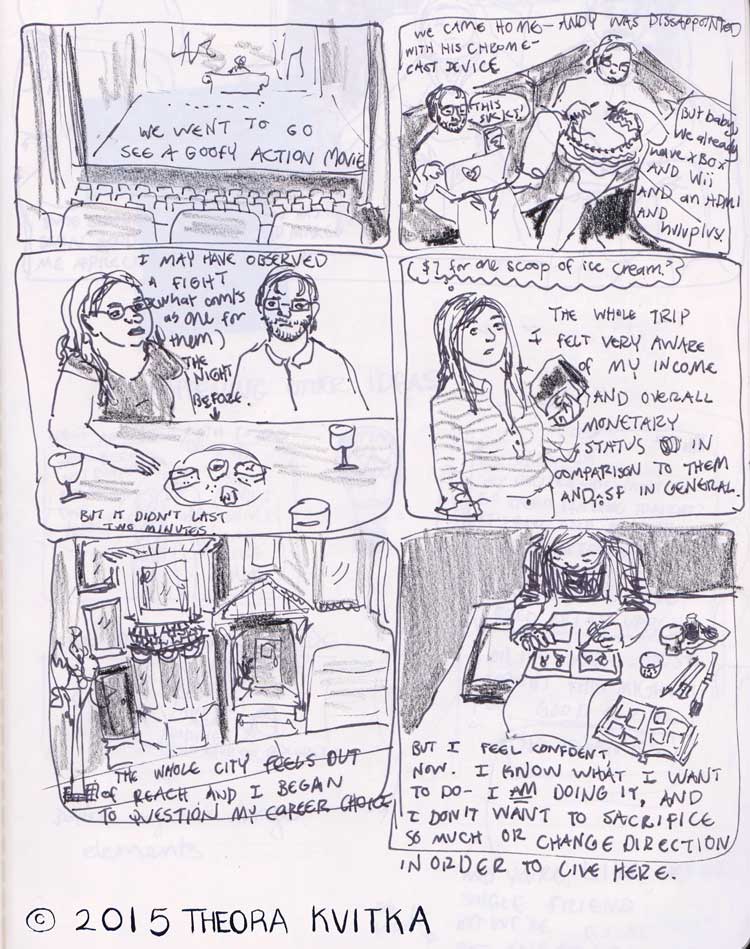 WE WENT TO GO
SEE A GOOFY ACTION MOVIE
WE CAME HOME - ANDY WAS DISSAPPOINTED
WITH HIS CHROME-
CAST DEVICE
THIS
SUCKS!
But baby,
We already
have xBox
AND Wii
AND an HDMI
AND
huluplus.
I MAY HAVE OBSERVED
A FIGHT
(what counts
as one for
them)
THE
NIGHT
BEFORE.
BUT IT DIDN'T LAST
TWO MINUTES.
($7 for one scoop of ice cream?)
THE WHOLE TRIP
I FELT VERY AWARE
of MY INCOME
AND OVERALL
MONETARY
STATUS IN
COMPARISON TO THEM
AND SF IN GENERAL.
THE WHOLE CITY FEELS OUT
of REACH AND I BEGAN
TO QUESTION MY CAREER CHOICE
BUT I FEEL CONFIDENT
NOW. I KNOW WHAT I WANT
TO DO- I AM DOING IT, AND
I DON'T WANT TO SACRIFICE
SO MUCH OR CHANGE DIRECTION
IN ORDER TO LIVE HERE.
© 2015 THEORA KVITKA